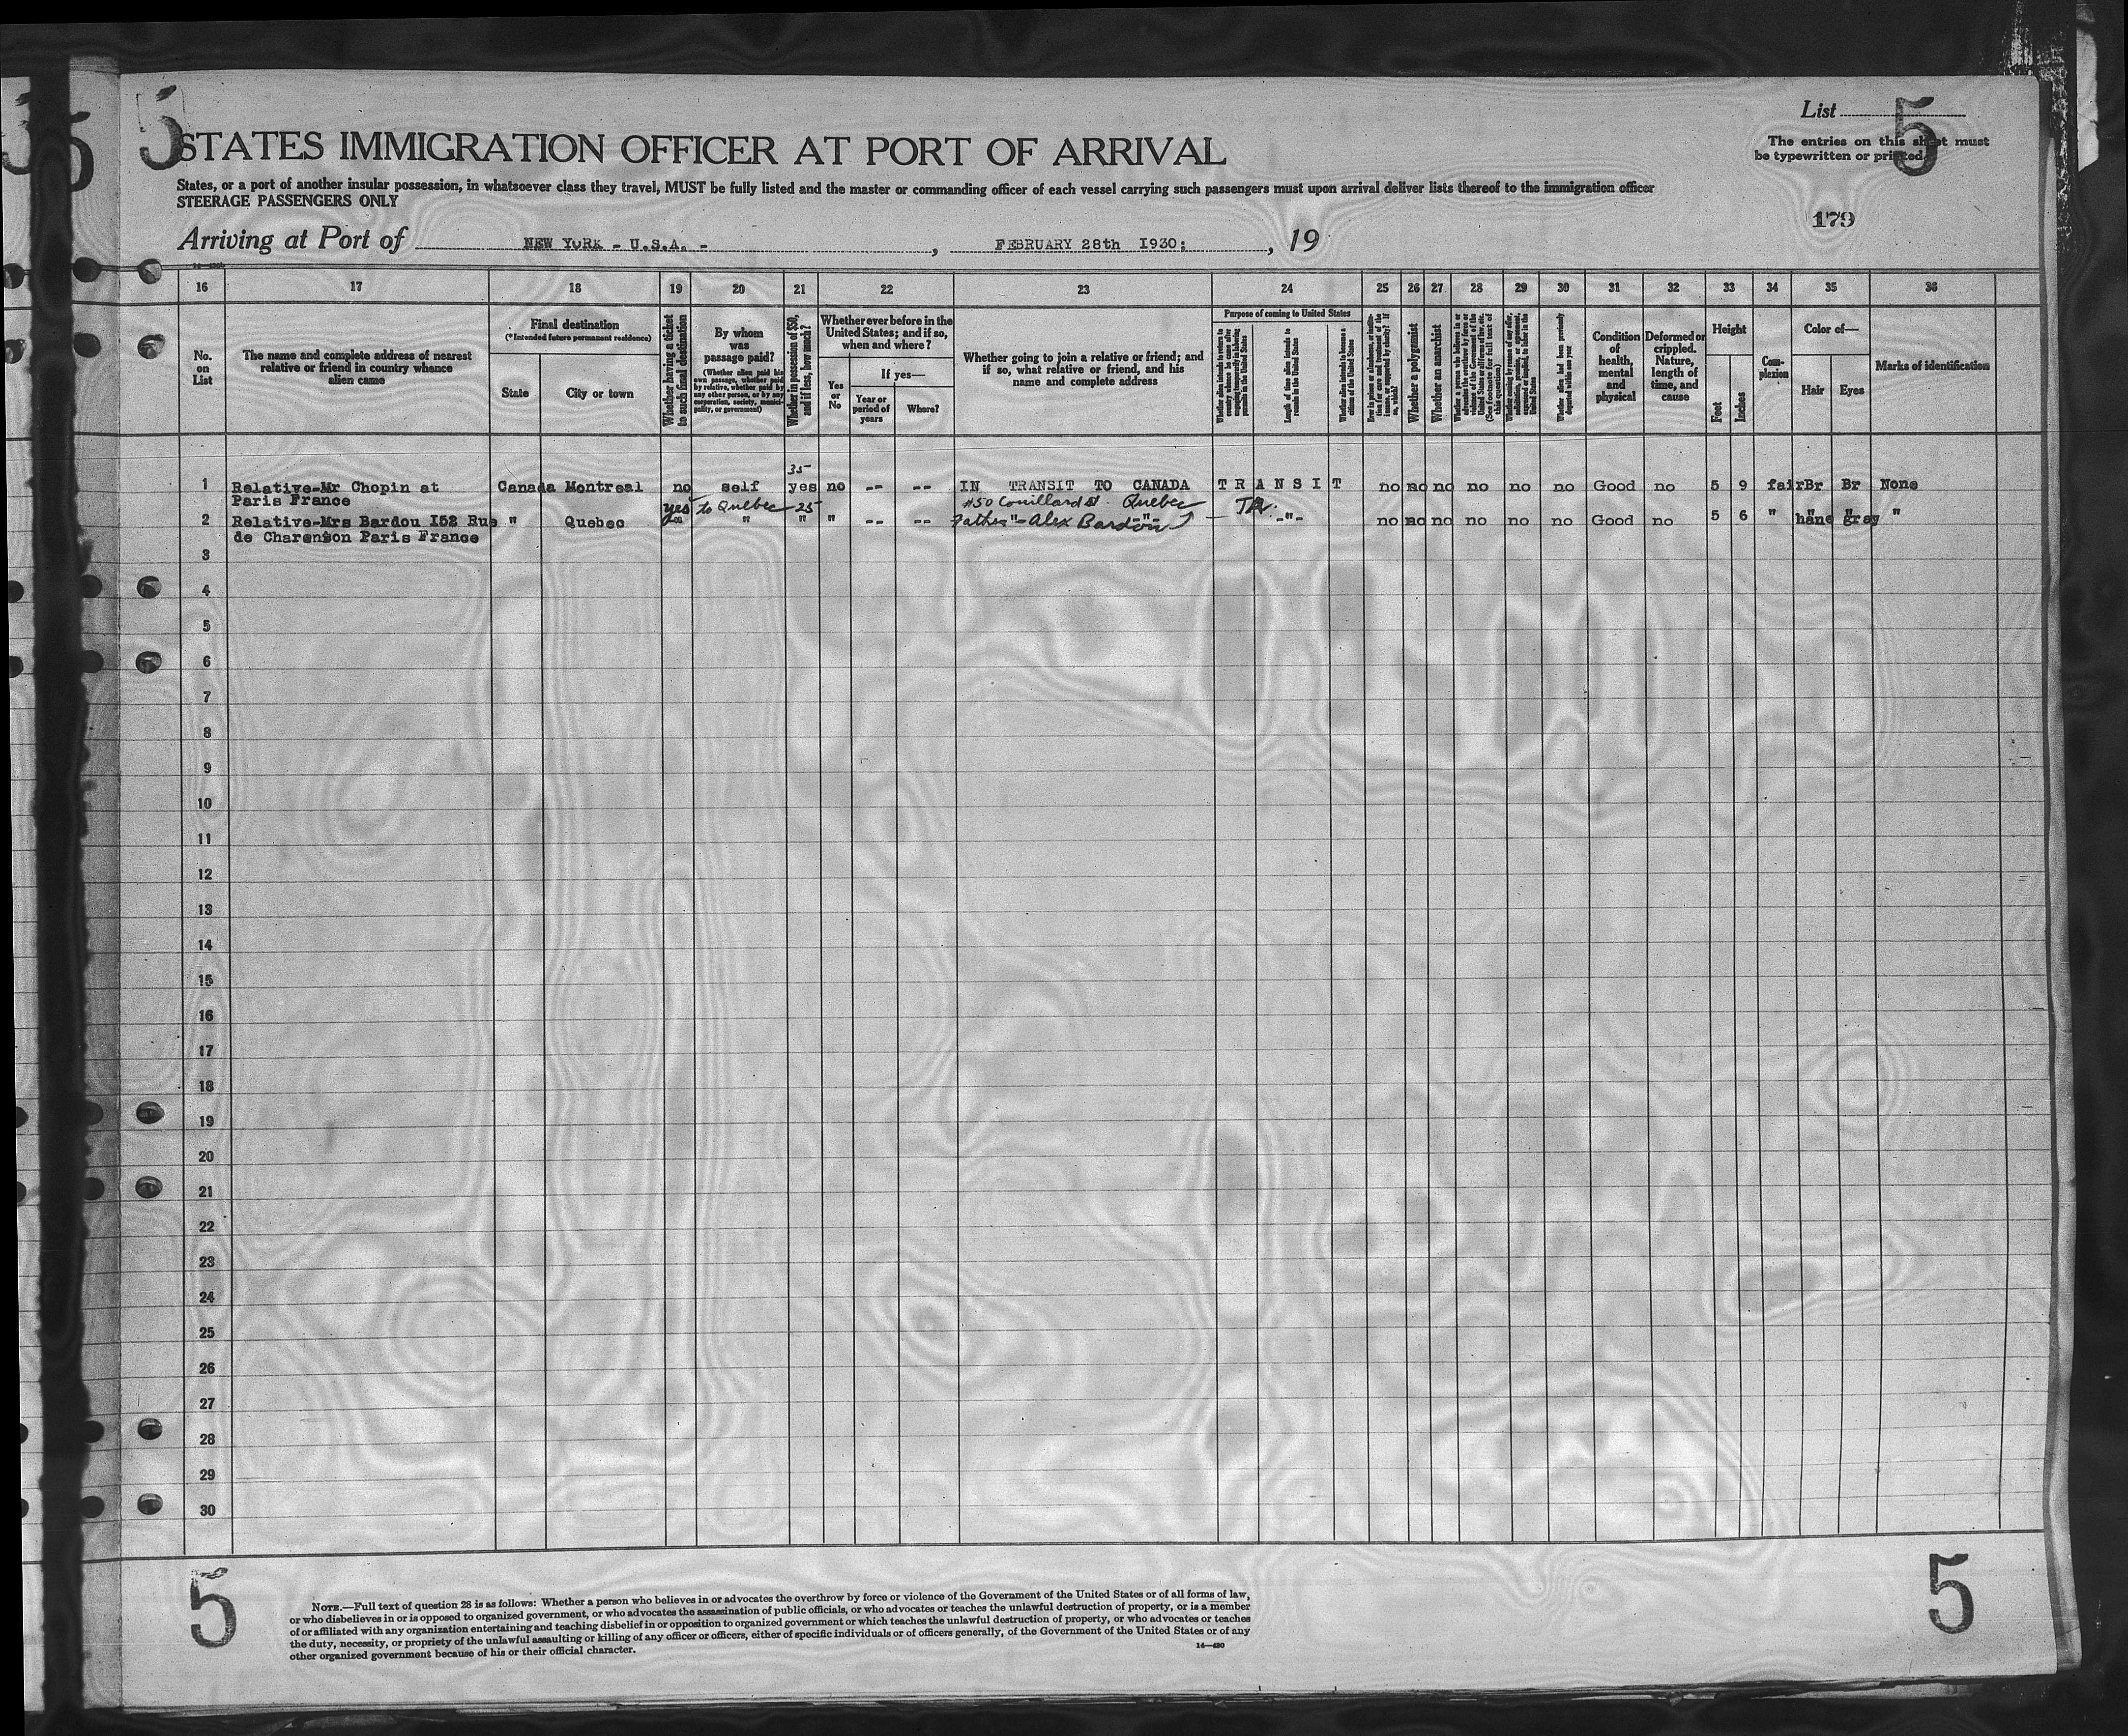 5
5
List 5
STATES IMMIGRATION OFFICER AT PORT OF ARRIVAL
The entries on this sheet must
be typewritten or printed.
States, or a port of another insular possession, in whatsoever class they travel, MUST be fully listed and the master or commanding officer of each vessel carrying such passengers must upon arrival deliver lists thereof to the immigration officer
STEERAGE PASSENGERS ONLY
179
Arriving at Port of NEW YORK - U.S.A. - , FEBRUARY 28th 1930: , 19
16 17 18 19 20 21 22 23 24 25 26 27 28 29 30 31 32 33 34 35 36
No. on List
The name and complete address of nearest relative or friend in country whence alien came
Final destination
(*Intended future permanent residence)
State
City or town
Whether having a ticket to such final destination
By whom was passage paid?
(Whether alien paid his own passage, whether paid by relative, whether paid by any other person, or by any corporation, society, municipality, or government)
Whether in possession of $50, and if less, how much?
Whether ever before in the United States; and if so, when and where?
Yes or No
If yes—
Year or period of years
Where?
Whether going to join a relative or friend; and if so, what relative or friend, and his name and complete address
Purpose of coming to United States
Length of time alien intends to remain in the United States
Whether alien intends to become a citizen of the United States
Whether a polygamist
Whether an anarchist
Condition of health, mental and physical
Deformed or crippled. Nature, length of time, and cause
Height
Feet
Inches
Complexion
Color of—
Hair
Eyes
Marks of identification
35-
1 Relative-Mr Chopin at Canada Montreal no self yes no -- -- IN TRANSIT TO CANADA T R A N S I T no no no no no no Good no 5 9 fair Br Br None
Paris France yes to Quebec 25- #50 Couillard st. Quebec TR.
2 Relative-Mrs Bardou 152 Rue " Quebec " " " -- -- Father - Alex Bardou -"- no no no no no no Good no 5 6 " hâne gray "
de Charenson Paris France
3
4
5
6
7
8
9
10
11
12
13
14
15
16
17
18
19
20
21
22
23
24
25
26
27
28
29
30
5
5
NOTE.—Full text of question 28 is as follows: Whether a person who believes in or advocates the overthrow by force or violence of the Government of the United States or of all forms of law,
or who disbelieves in or is opposed to organized government, or who advocates the assassination of public officials, or who advocates or teaches the unlawful destruction of property, or is a member
of or affiliated with any organization entertaining and teaching disbelief in or opposition to organized government or which teaches the unlawful destruction of property, or who advocates or teaches
the duty, necessity, or propriety of the unlawful assaulting or killing of any officer or officers, either of specific individuals or of officers generally, of the Government of the United States or of any
other organized government because of his or their official character.
14—490